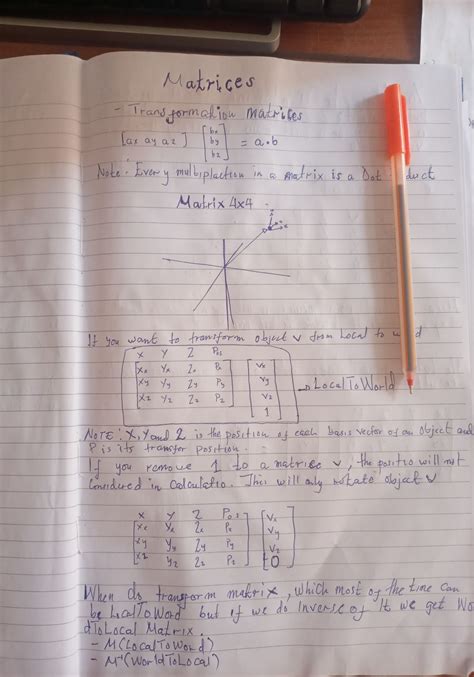 Matrices
- Transformation matrices
[ax ay az] [bx by bz] = a.b
Note: Every multiplaction in a matrix is a Dot duct
Matrix 4x4
If you want to transform object v from Local to w d
X Y Z Pos
Xx Yx Zx Px Vx
Xy Yy Zy Py Vy → LocalToWorld
Xz Yz Zz Pz Vz
1
NOTE: X, Y and Z is the position of each basis vector of an object and
P is its transfer position.
If you remove 1 to a matrice v, the positio will not
Considered in Calculatio. This will only rotate object v
X Y Z Pos
Xx Yx Zx Px Vx
Xy Yy Zy Py Vy
Xz Yz Zz Pz Vz
0
When do transform matrix, which most of the time can
be LocalToWord but if we do inverse of it we get Wo
dToLocal Matrix.
- M(LocalToWord)
- M⁻¹(WorldToLocal)